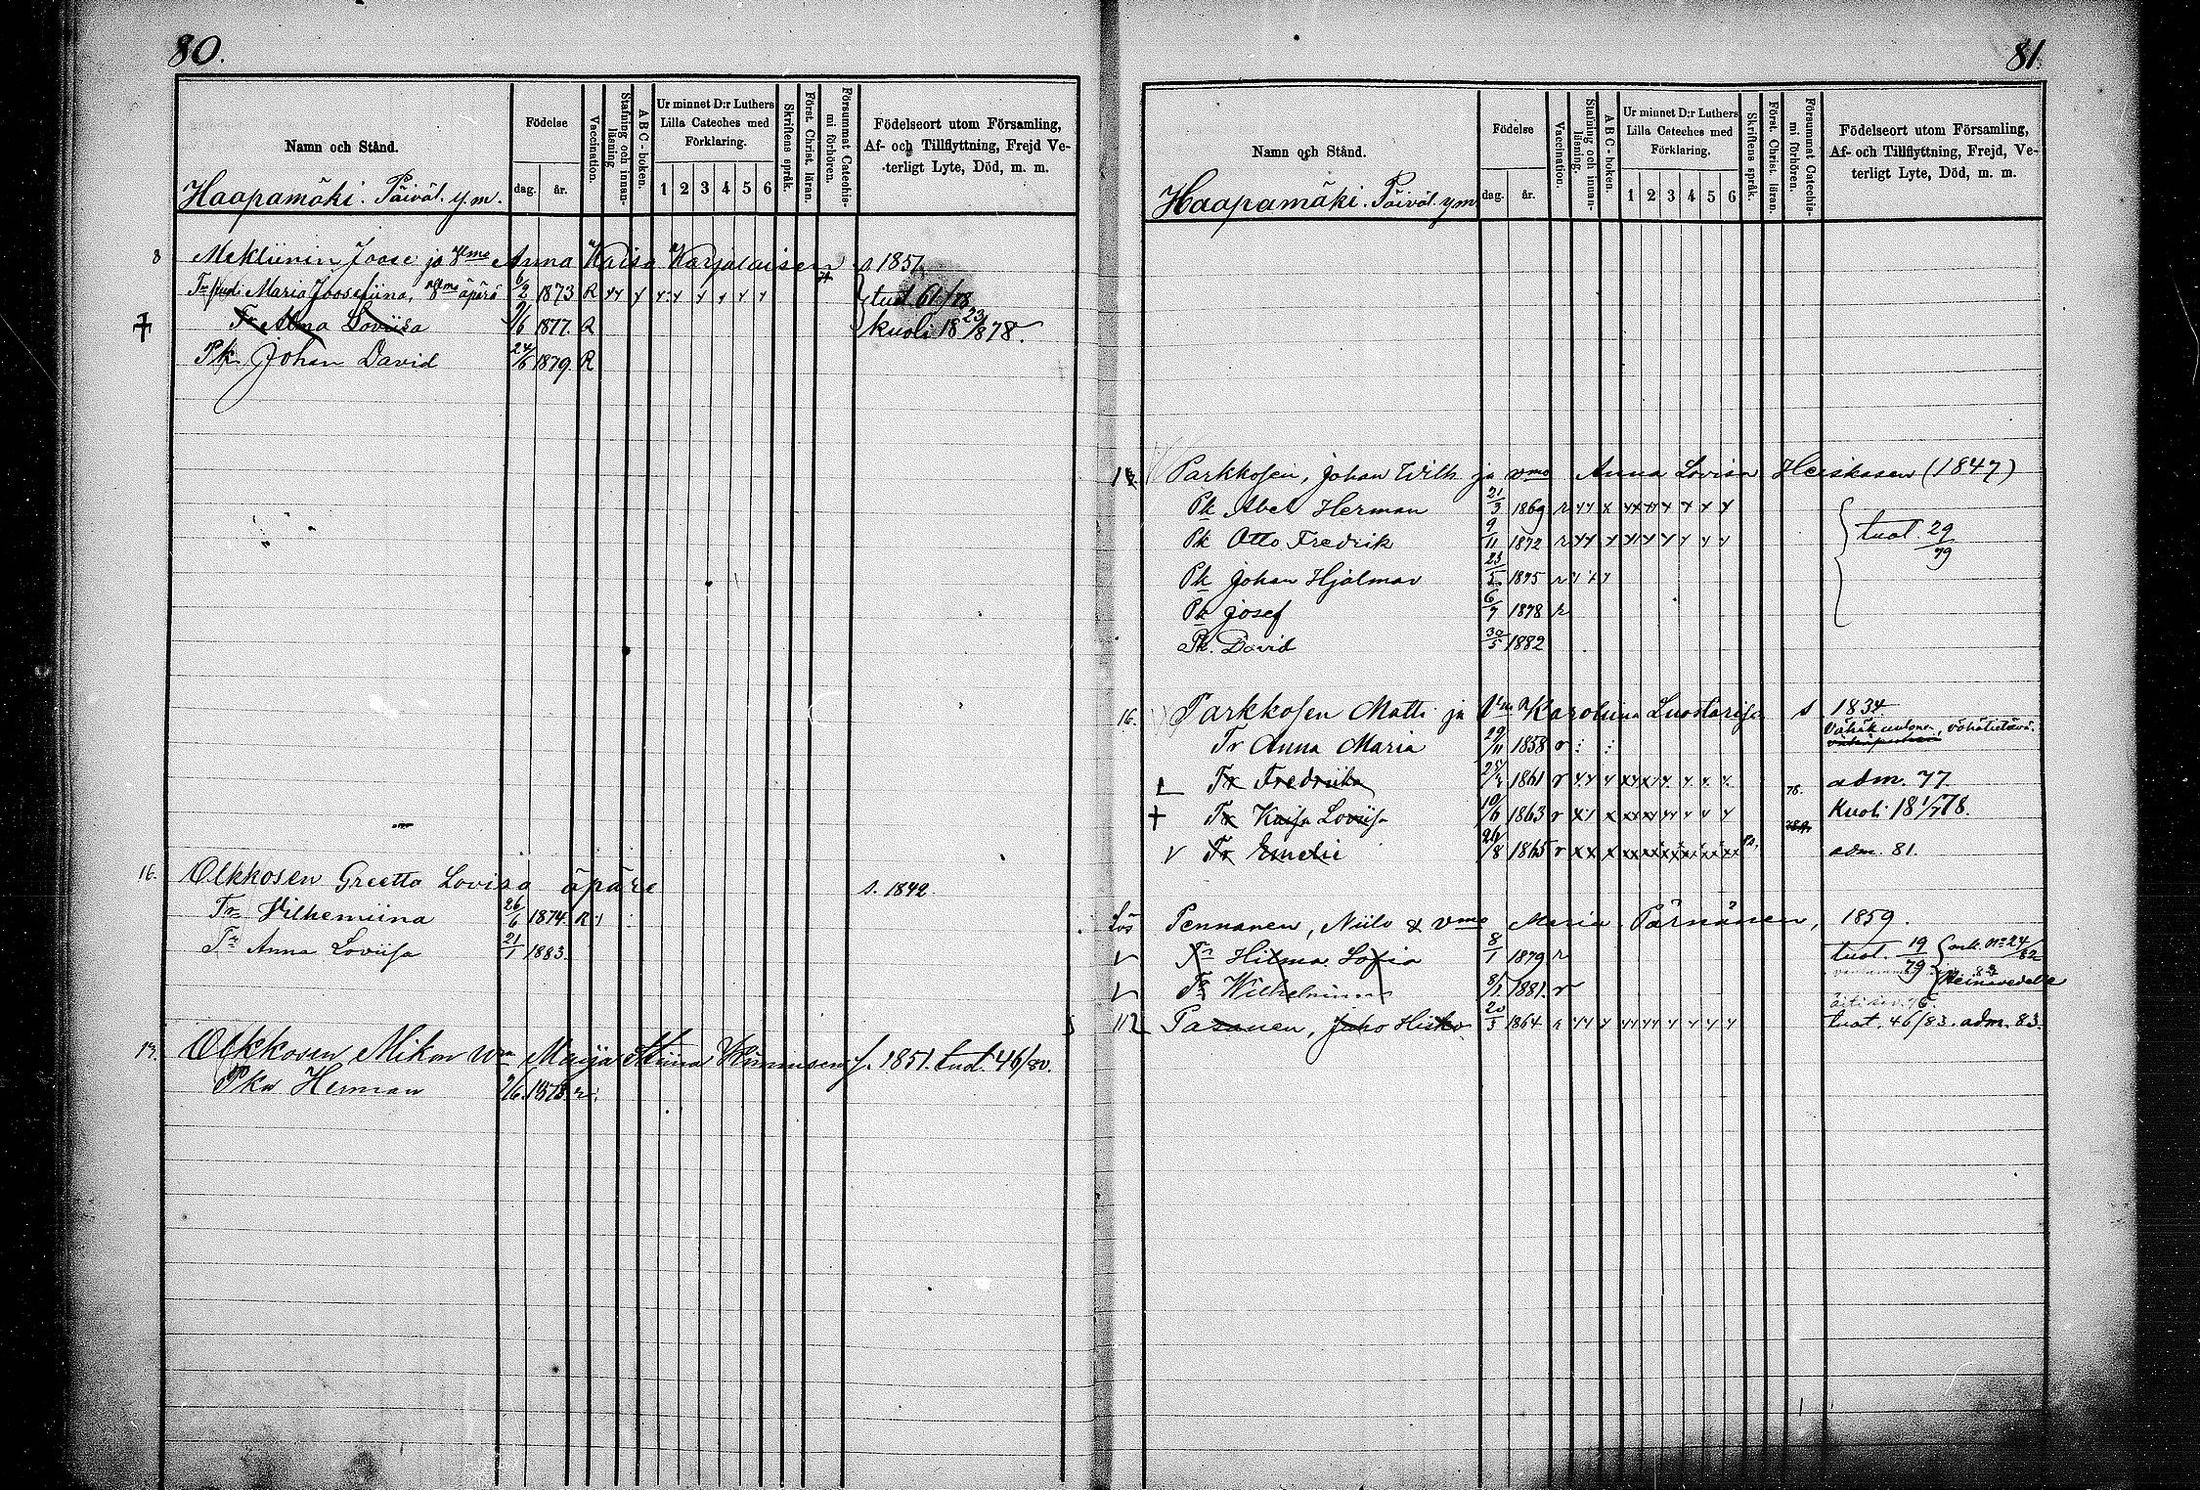 80.
Namn och Stånd.
Födelse
dag. år.
Vaccination.
Stafning och innan-läsning.
A B C - boken.
Ur minnet D:r Luthers Lilla Cateches med Förklaring.
1 2 3 4 5 6
Skriftens språk.
Först. Christ. läran.
Försummat Catechis-mi förhören.
Födelseort utom Församling,
Af- och Tillflyttning, Frejd Ve-
terligt Lyte, Död, m. m.
Haapamäki. Päiväl. y.m.
8 Mekliinin Joose ja Vmo Anna Kaisa Karjalaisen s 1851
Tr Maria Joosefiina, äpärä 6/2 1873 R tuat 61/78
Tr Alma Loviisa 9/6 1877. R kuoli 18 23/ 878.
Pk Johan David 24/6 1879. R
16. Olkkosen Greetta Lovisa äpäre s. 1842
Tr Vilhemiina 26/6 1874. R
Tr Anna Loviisa 21/1 1883.
17. Olkkosen Mikon Vm Maija Stiina s. 1851. tuat. 46/80.
Pka Herman 2/6. 1878. r
81.
Namn och Stånd.
Födelse
dag. år.
Vaccination.
Stafning och innan-läsning.
A B C - boken.
Ur minnet D:r Luthers Lilla Cateches med Förklaring.
1 2 3 4 5 6
Skriftens språk.
Först. Christ. läran.
Försummat Catechis-mi förhören.
Födelseort utom Församling,
Af- och Tillflyttning, Frejd, Ve-
terligt Lyte, Död, m. m.
Haapamäki. Päiväl. ym
Parkkosen, Johan Wilh ja vmo Anna Lovisa Heiskasen (1847)
Pk Abel Herman 21/3 1869 r
Pk Otto Fredrik 9/11 1872 r tuat. 29/79
Pk Johan Hjalmar 23/5 1875 r
Pk Josef 6/7 1878 r
Pk. David 30/5 1882
16. Parkkosen Matti ja Vmo Karoliina Luostarisen s 1834
Tr Anna Maria 29/11 1858 r vähätietävä.
Tr Fredriika 1861 r 78. adm. 77.
Tr Kaisa Loviisa 10/6 1863 r Kuoli 18 1/7 78.
Tr Emelie 26/8 1865 r 82. adm. 81.
Lös Pennanen, Niilo & Vmo Maria Pärnänen, 1859.
Tr Hilma Sofia 8/1 1879 r tuat. 19/79 muk. No 24/82
Tr Wilhelmina 8/1. 1881. r Heinävedelle
112 Pasanen, Juho Hisko 20/3 1864 r tuat. 46/83. adm. 83.